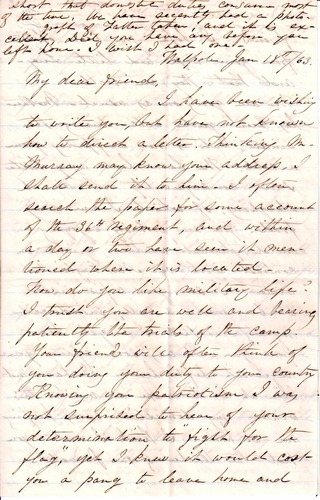 short that domestic duties consume most
of the time. We have recently had a photo-
graph of Father taken, and it is ex-
cellent. Did you have any before you
left home. I wish I had one.
Walpole, Jan 18th/63.
My dear friend,
I have been wishing
to write you, but have not known
how to direct a letter. Thinking Mr
Murray may know your address, I
shall send it to him. I often
search the paper for some account
of the 36th regiment, and within
a day or two have seen it men-
tioned where it is located.
How do you like military life?
I trust you are well and bearing
patiently the trials of the camp.
Your friends will often think of
you doing your duty to your country
Knowing your patriotism I was
not surprised to hear of your
determination to "fight for the
flag", yet I knew it would cost
you a pang to leave home and